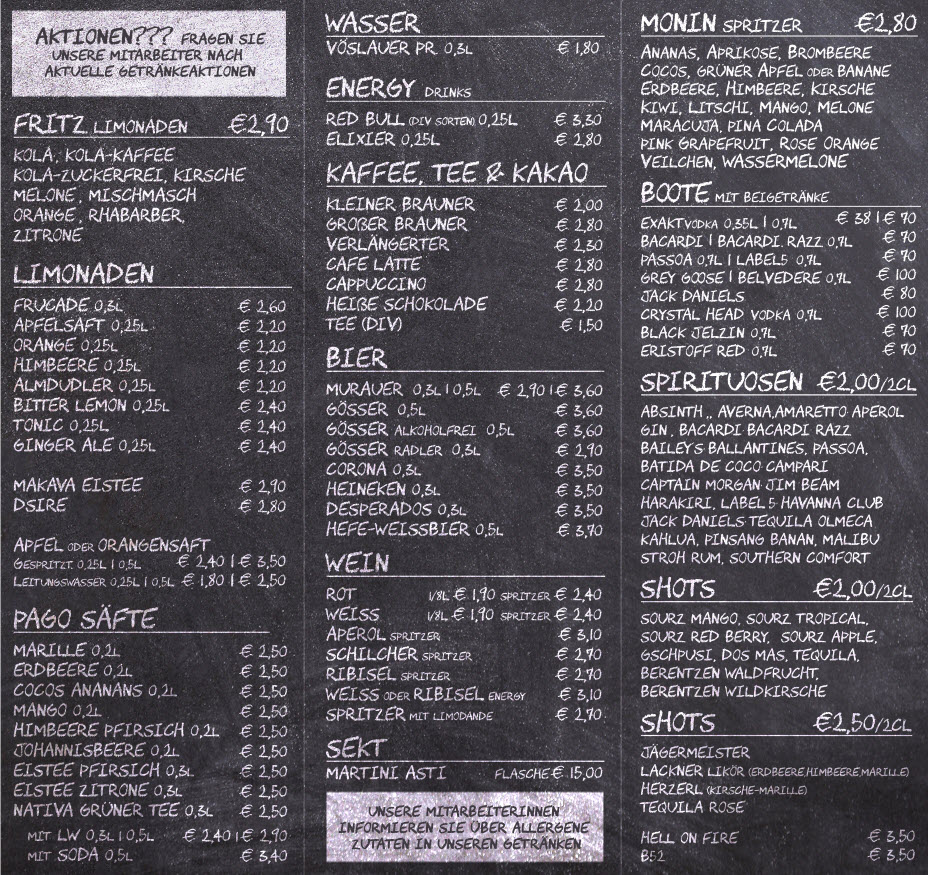 AKTIONEN??? FRAGEN SIE
UNSERE MITARBEITER NACH
AKTUELLE GETRÄNKEAKTIONEN
FRITZ LIMONADEN €2,90
KOLA, KOLA-KAFFEE
KOLA-ZUCKERFREI, KIRSCHE
MELONE, MISCHMASCH
ORANGE, RHABARBER,
ZITRONE
LIMONADEN
FRUCADE 0,3L € 2,60
APFELSAFT 0,25L € 2,20
ORANGE 0,25L € 2,20
HIMBEERE 0,25L € 2,20
ALMDUDLER 0,25L € 2,20
BITTER LEMON 0,25L € 2,40
TONIC 0,25L € 2,40
GINGER ALE 0,25L € 2,40
MAKAVA EISTEE € 2,90
DSIRE € 2,80
APFEL ODER ORANGENSAFT
GESPRITZT 0,25L | 0,5L € 2,40 | € 3,50
LEITUNGSWASSER 0,25L | 0,5L € 1,80 | € 2,50
PAGO SÄFTE
MARILLE 0,2L € 2,50
ERDBEERE 0,2L € 2,50
COCOS ANANANS 0,2L € 2,50
MANGO 0,2L € 2,50
HIMBEERE PFIRSICH 0,2L € 2,50
JOHANNISBEERE 0,2L € 2,50
EISTEE PFIRSICH 0,3L € 2,50
EISTEE ZITRONE 0,3L € 2,50
NATIVA GRÜNER TEE 0,3L € 2,50
MIT LW 0,3L | 0,5L € 2,40 | € 2,90
MIT SODA 0,5L € 3,40
WASSER
VÖSLAUER PR. 0,3L € 1,80
ENERGY DRINKS
RED BULL (DIV SORTEN) 0,25L € 3,30
ELIXIER 0,25L € 2,80
KAFFEE, TEE & KAKAO
KLEINER BRAUNER € 2,00
GROßER BRAUNER € 2,80
VERLÄNGERTER € 2,30
CAFE LATTE € 2,80
CAPPUCCINO € 2,80
HEIßE SCHOKOLADE € 2,20
TEE (DIV) € 1,50
BIER
MURAUER 0,3L | 0,5L € 2,90 | € 3,60
GÖSSER 0,5L € 3,60
GÖSSER ALKOHOLFREI 0,5L € 3,60
GÖSSER RADLER 0,3L € 2,90
CORONA 0,3L € 3,50
HEINEKEN 0,3L € 3,50
DESPERADOS 0,3L € 3,50
HEFE-WEISSBIER 0,5L € 3,70
WEIN
ROT 1/8L € 1,90 SPRITZER € 2,40
WEISS 1/8L € 1,90 SPRITZER € 2,40
APEROL SPRITZER € 3,10
SCHILCHER SPRITZER € 2,70
RIBISEL SPRITZER € 2,70
WEISS ODER RIBISEL ENERGY € 3,10
SPRITZER MIT LIMODANDE € 2,70
SEKT
MARTINI ASTI FLASCHE € 15,00
UNSERE MITARBEITERINNEN
INFORMIEREN SIE ÜBER ALLERGENE
ZUTATEN IN UNSEREN GETRÄNKEN
MONIN SPRITZER €2,80
ANANAS, APRIKOSE, BROMBEERE
COCOS, GRÜNER APFEL ODER BANANE
ERDBEERE, HIMBEERE, KIRSCHE
KIWI, LITSCHI, MANGO, MELONE
MARACUJA, PINA COLADA
PINK GRAPEFRUIT, ROSE ORANGE
VEILCHEN, WASSERMELONE
BOOTE MIT BEIGETRÄNKE
EXAKT VODKA 0,35L | 0,7L € 38 | € 70
BACARDI | BACARDI RAZZ 0,7L € 70
PASSOA 0,7L | LABEL5 0,7L € 70
GREY GOOSE | BELVEDERE 0,7L € 100
JACK DANIELS € 80
CRYSTAL HEAD VODKA 0,7L € 100
BLACK JELZIN 0,7L € 70
ERISTOFF RED 0,7L € 70
SPIRITUOSEN €2,00/2CL
ABSINTH,, AVERNA,AMARETTO APEROL
GIN, BACARDI BACARDI RAZZ
BAILEY'S BALLANTINES, PASSOA,
BATIDA DE COCO CAMPARI
CAPTAIN MORGAN JIM BEAM
HARAKIRI, LABEL 5 HAVANNA CLUB
JACK DANIELS TEQUILA OLMECA
KAHLUA, PINSANG BANAN, MALIBU
STROH RUM, SOUTHERN COMFORT
SHOTS €2,00/2CL
SOURZ MANGO, SOURZ TROPICAL,
SOURZ RED BERRY, SOURZ APPLE,
GSCHPUSI, DOS MAS, TEQUILA,
BERENTZEN WALDFRUCHT,
BERENTZEN WILDKIRSCHE
SHOTS €2,50/2CL
JÄGERMEISTER
LACKNER LIKÖR (ERDBEERE,HIMBEERE,MARILLE)
HERZERL (KIRSCHE-MARILLE)
TEQUILA ROSE
HELL ON FIRE € 3,50
B52 € 3,50